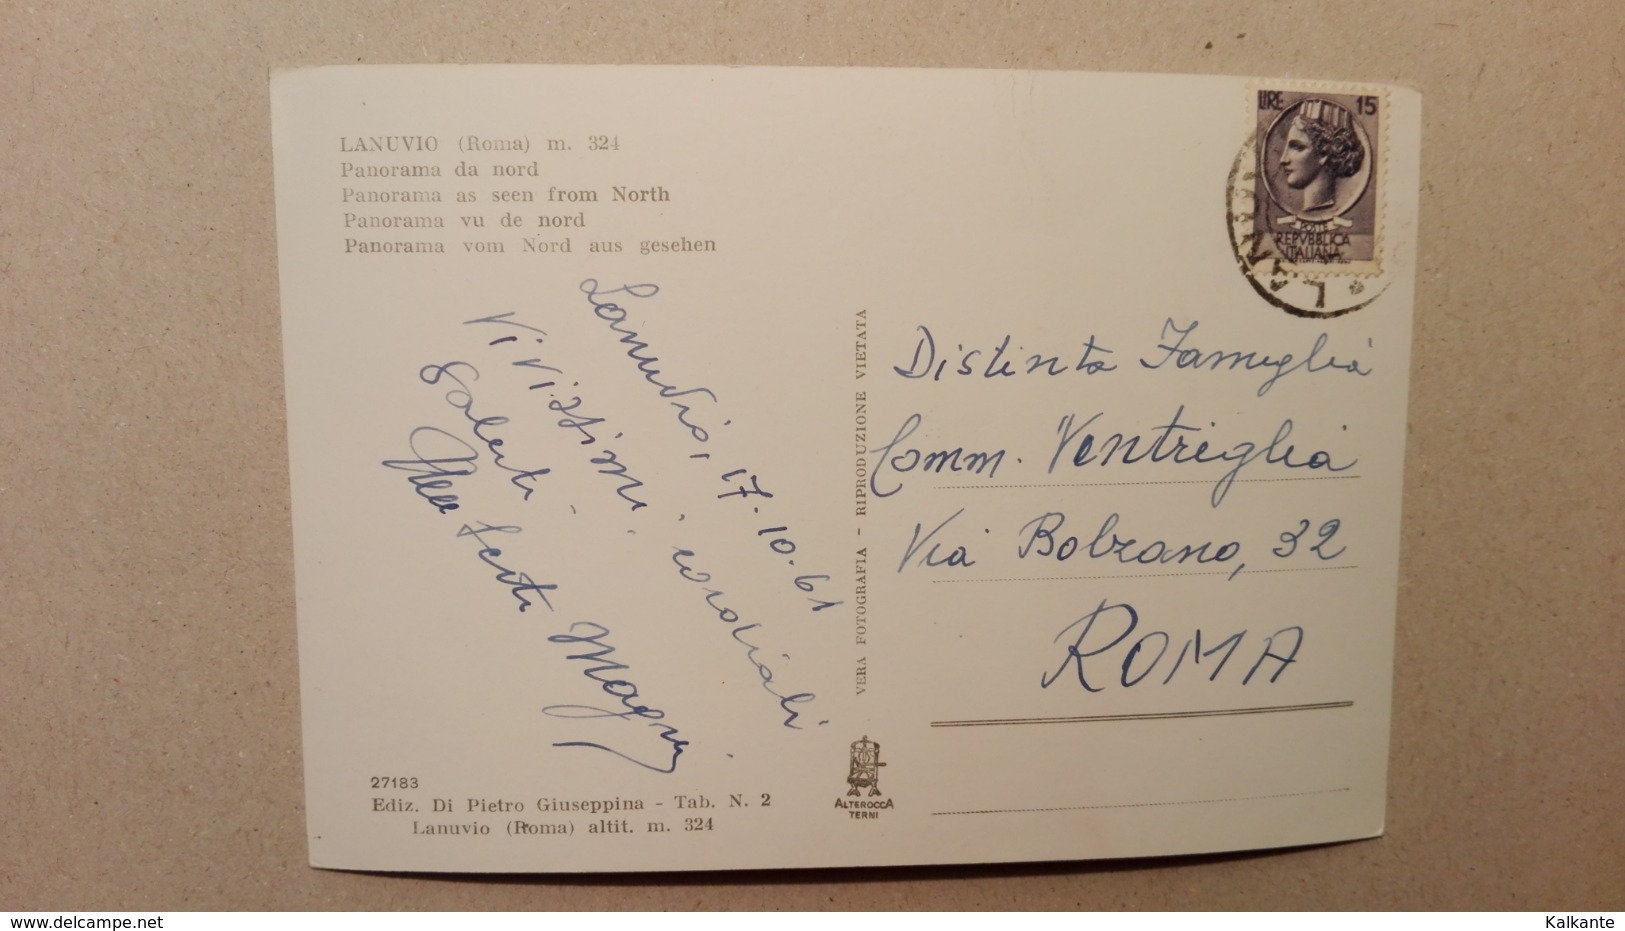 LANUVIO (Roma) m. 324
Panorama da nord
Panorama as seen from North
Panorama vu de nord
Panorama vom Nord aus gesehen
Lanuvio, 17.10.61
Vivissimi, cordiali
saluti
Magni
27183
Ediz. Di Pietro Giuseppina - Tab. N. 2
Lanuvio (Roma) altit. m. 324
VERA FOTOGRAFIA - RIPRODUZIONE VIETATA
ALTEROCCA
TERNI
LIRE 15
POSTE
REPVBBLICA
ITALIANA
Distinta Famiglia
Comm. Ventriglia
Via Bolzano, 32
ROMA
www.delcampe.net
Kalkante